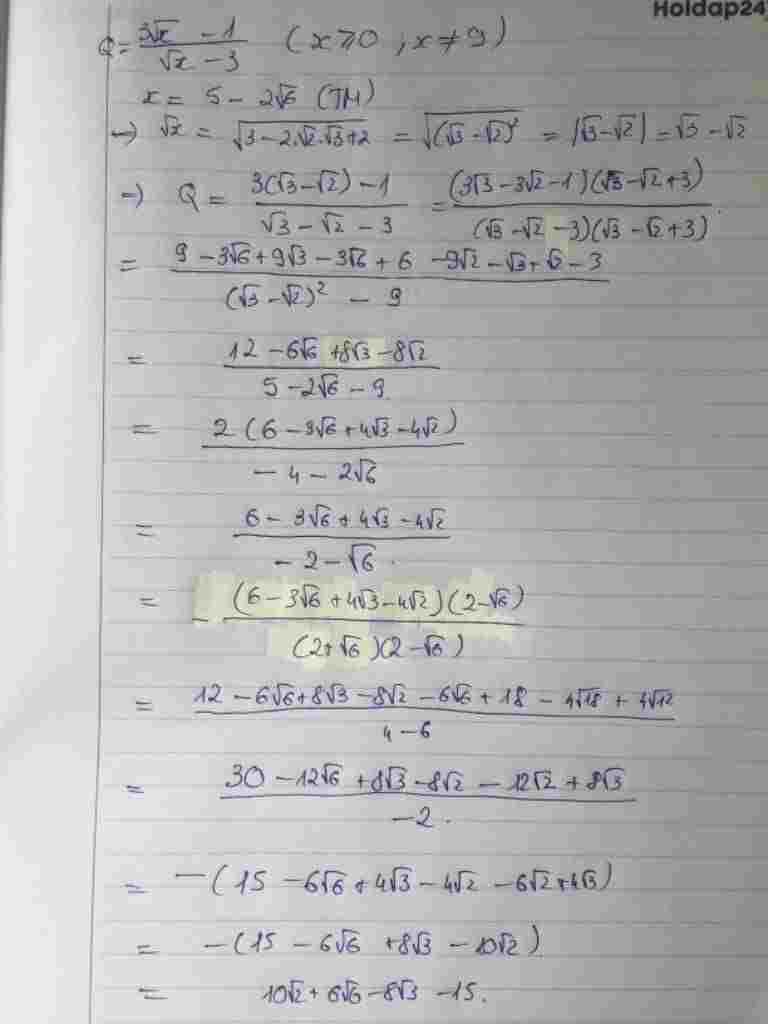 Holdap24
Q = (3√x - 1)/(√x - 3) (x ≥ 0, x ≠ 9)
x = 5 - 2√6 (TM)
→ √x = √(3 - 2.√2.√3 + 2) = √((√3 - √2)²) = |√3 - √2| = √3 - √2
→ Q = (3(√3 - √2) - 1)/(√3 - √2 - 3) = ((3√3 - 3√2 - 1)(√3 - √2 + 3))/((√3 - √2 - 3)(√3 - √2 + 3)).
= (9 - 3√6 + 9√3 - 3√6 + 6 - 9√2 - √3 + √2 - 3)/((√3 - √2)² - 9)
= (12 - 6√6 + 8√3 - 8√2)/(5 - 2√6 - 9)
= (2(6 - 3√6 + 4√3 - 4√2))/(-4 - 2√6)
= (6 - 3√6 + 4√3 - 4√2)/(-2 - √6).
= -((6 - 3√6 + 4√3 - 4√2)(2 - √6))/((2 + √6)(2 - √6))
= (12 - 6√6 + 8√3 - 8√2 - 6√6 + 18 - 4√18 + 4√12)/(4 - 6)
= (30 - 12√6 + 8√3 - 8√2 - 12√2 + 8√3)/(-2).
= -(15 - 6√6 + 4√3 - 4√2 - 6√2 + 4√3)
= -(15 - 6√6 + 8√3 - 10√2)
= 10√2 + 6√6 - 8√3 - 15.